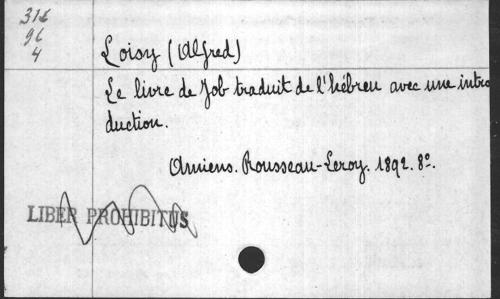 316
96
4
Loisy (Alfred)
Le livre de Job traduit de l'hébreu avec une intro
duction.
Amiens. Rousseau-Leroy. 1892. 8º.
LIBER PROHIBITUS